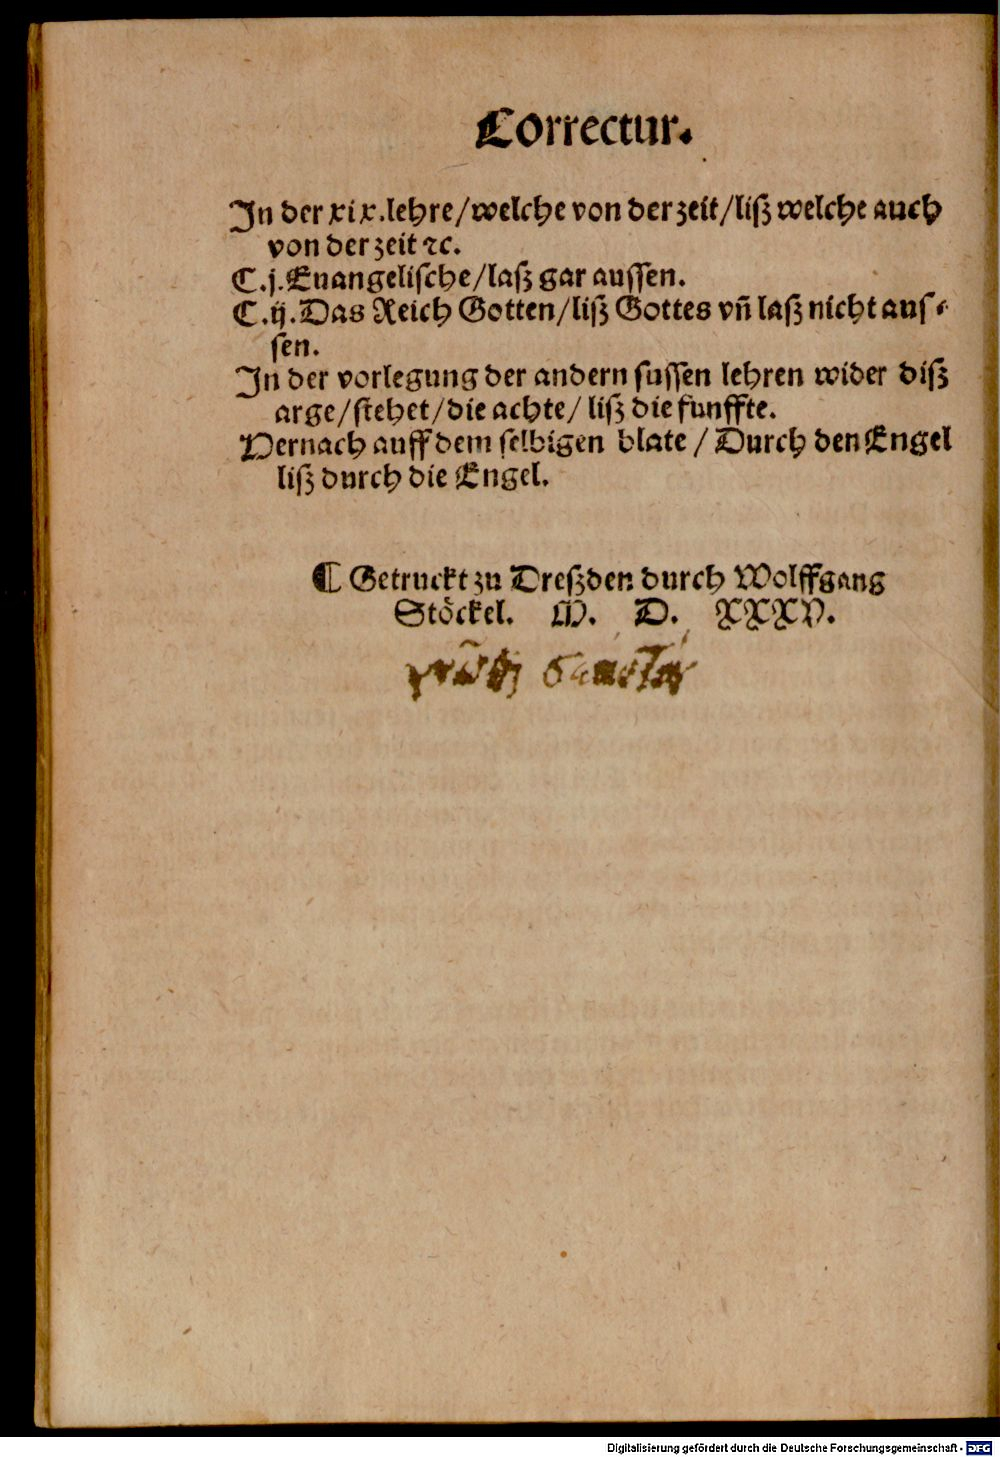 Correctur.
In der xix.lehre/welche von der zeit/lisz welche auch
von der zeit ꝛc.
C.j.Euangelische/lasz gar aussen.
C.ij.Das Reich Gotten/lisz Gottes vñ lasz nicht aus⸗
sen.
In der vorlegung der andern sussen lehren wider disz
arge/stehet/die achte/ lisz die funffte.
Dernach auff dem selbigen blate / Durch den Engel
lisz durch die Engel.
¶ Getruckt zu Dreszden durch Wolffgang
Stöckel. M. D. XXXV.
Digitalisierung gefördert durch die Deutsche Forschungsgemeinschaft - DFG